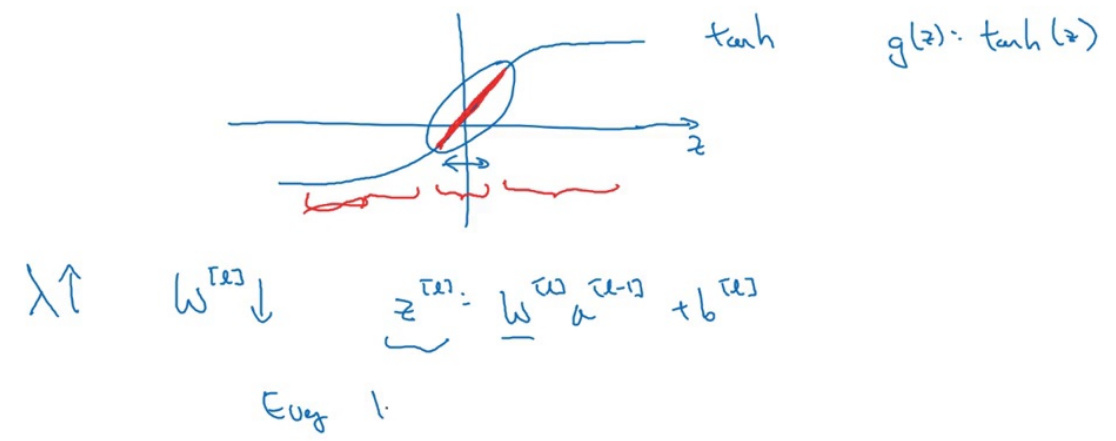 tanh g(z) = tanh(z)
z
λ↑ W^[l]↓ z^[l] = W^[l] a^[l-1] + b^[l]
Every l